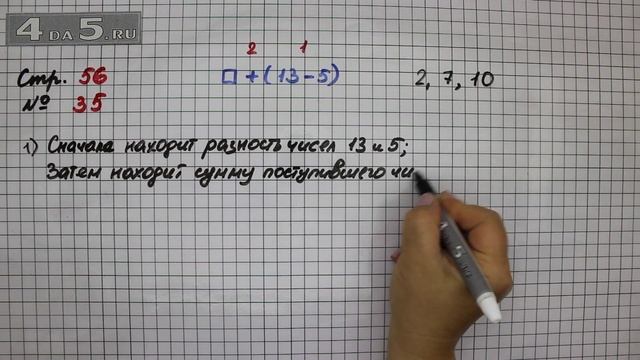 4DA5.RU
2 1
Стр. 56 □ + (13 - 5) 2, 7, 10
№ 35
1) Сначала находит разность чисел 13 и 5;
Затем находит сумму поступившего чи